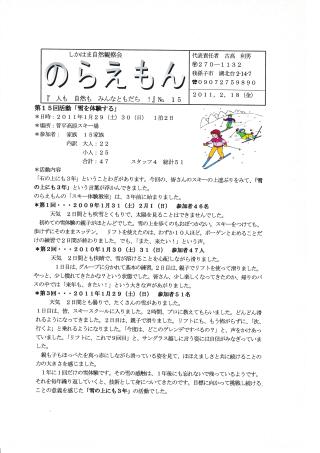 しかはま自然観察会
のらえもん
『 人も 自然も みんなともだち !』№ 15
代表責任者 古高 利男
〒270-1132
我孫子市 湖北台2-14-7
☎09072759890
2011,2,18(金)
第15回活動「雪を体験する」
*日時:2011年1月29(土)30(日) 1泊2日
*場所:菅平高原スキー場
*参加者: 家族 15家族
内訳 大人:22
小人:25
合計:47 スタッフ4 総計51
*活動内容
「石の上にも3年」ということわざがあります。今回の、皆さんのスキーの上達ぶりをみて、「雪
の上にも3年」という言葉が浮かんできました。
のらえもんの「スキー体験教室」は、3年前に始まりました。
*第1回・・・2009年1月31(土)2月1(日) 参加者46名
天気 2日間とも吹雪とくもりで、太陽を見ることはできませんでした。
初めての実験の親子がほとんどでした。雪の上を歩くのもおぼつかない。スキーをつけても、
歩けずにそのまますってテン。 リフトを使えたのは、わずか10人ほど。ボーゲンと止めることだ
けの練習で2日間が終わりました。でも、「また、来たい!」という声。
*第2回・・・2010年1月30(土)31(日) 参加者47人
天気 2日間とも快晴で、雪が溶けることを心配しながら滑りました。
1日目は、グループに分かれて基本の練習。2日目は、親子でリフトを使って滑りました。
やっと、少し慣れてきたかな?という程度でした。皆さん、少し楽しくなってきたのか、帰りのバ
スの中では「来年も、きたい!」という大きな声がありました。
*第3回・・・2011年1月29(土)(日) 参加者51名
天気 2日間とも曇りで、たくさんの雪がありました。
1日目は、皆、スキースクールに入りました。2時間、プロに教えてもらいました。どんどん滑
れるようになりました。2日目は、親子で滑りました。リフトにも、もう怖がらずに、「次、
行くよ」と乗れるようになりました。「今度は、どこのゲレンデですべるの?」と、声をかけあっ
ていました。「リフトに、これで9回目」と、サングラス越しに言う姿には自信がみなぎっていま
した。
親も子もほっぺたを真っ赤にしながら滑っている姿を見て、ほほえましさと共に続けることの
力の大きさを感じました。
1年に1回だけの雪体験です。その雪の感触は、1年後にも忘れないで残っているようです。
それを毎年繰り返していくと、技術として身についてきたのです。目標に向かって挑戦し続ける
ことの意義を感じた「雪の上にも3年」の活動でした。